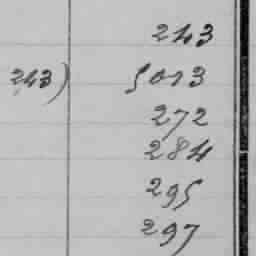 243
243) 5013
272
284
295
297